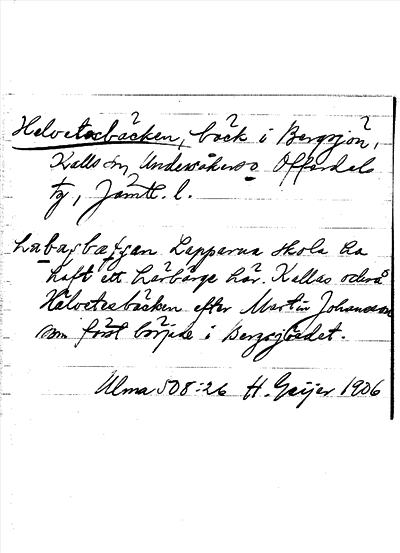 Helvetesbäcken, bäck i Bergsjön,
Kalls sn, Undersåkers o Offerdals
tg, Jämtl. l.
Lapparna skola ha
haft ett härbärge här. Kallas också
Helvetesbäcken efter Martin Johansson
som först började i Bergsjöedet.
Ulma 508:26 H. Geijer 1906